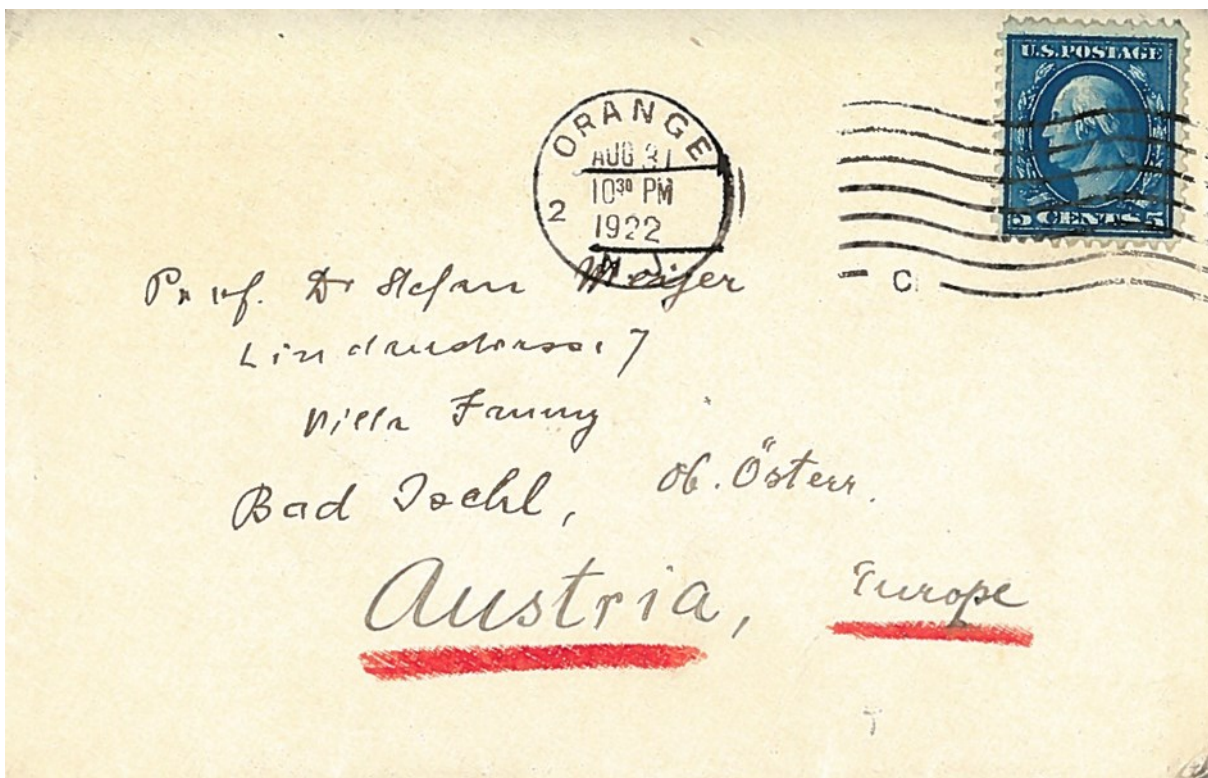 U.S.POSTAGE
5 CENTS 5
ORANGE
AUG 31
10³⁰ PM
2
1922
N.J.
C
Prof. Dr Stefan Meyer
7
Villa Fanny
Bad Ischl, ob. Österr.
Austria, Europe